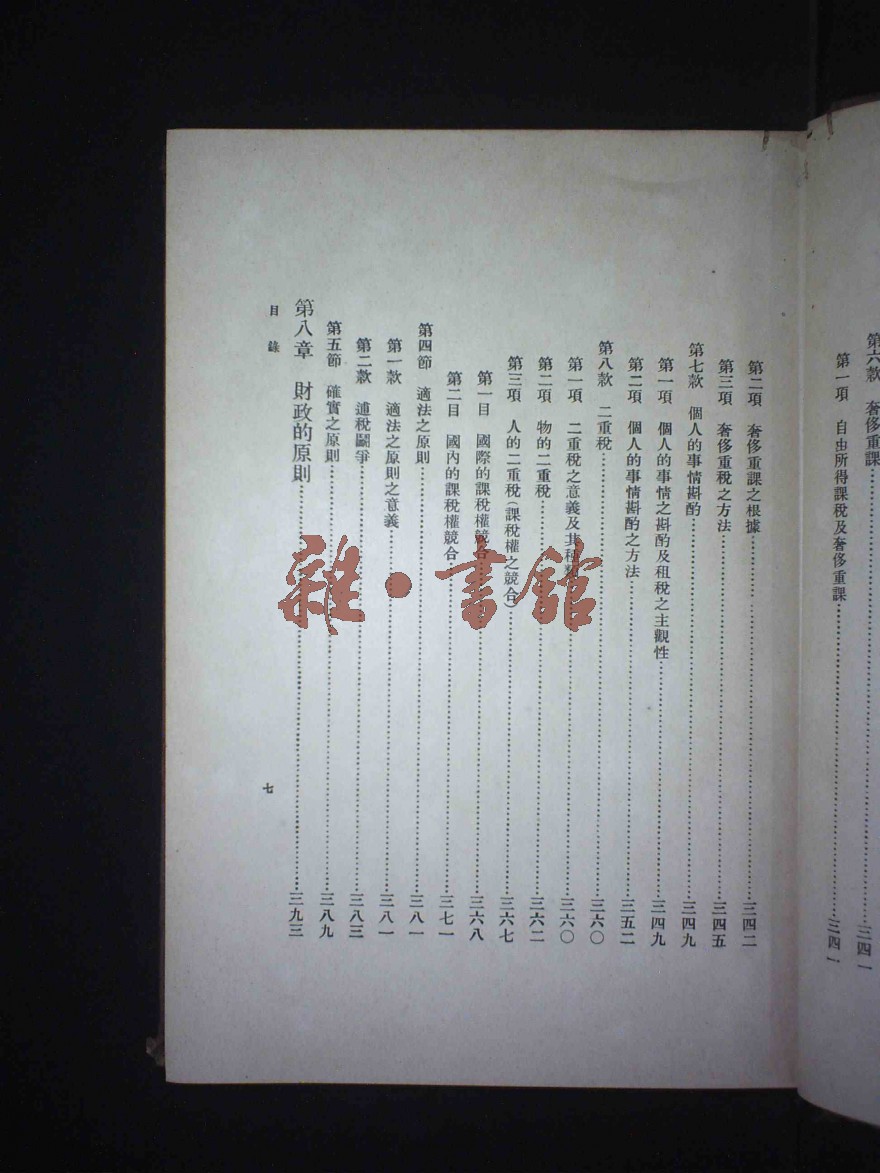 第六款　奢侈重課…………三四一
第一項　自由所得課稅及奢侈重課…………三四一
第二項　奢侈重課之根據…………三四二
第三項　奢侈重稅之方法…………三四五
第七款　個人的事情斟酌…………三四九
第一項　個人的事情之斟酌及租稅之主觀性…………三四九
第二項　個人的事情斟酌之方法…………三五二
第八款　二重稅…………三六〇
第一項　二重稅之意義及其種類…………三六〇
第二項　物的二重稅…………三六二
第三項　人的二重稅（課稅權之競合）…………三六七
第一目　國際的課稅權競合…………三六八
第二目　國內的課稅權競合…………三七一
第四節　適法之原則…………三八一
第一款　適法之原則之意義…………三八一
第二款　逋稅鬭爭…………三八三
第五節　確實之原則…………三八九
第八章　財政的原則…………三九三
目錄
七
雜·書館